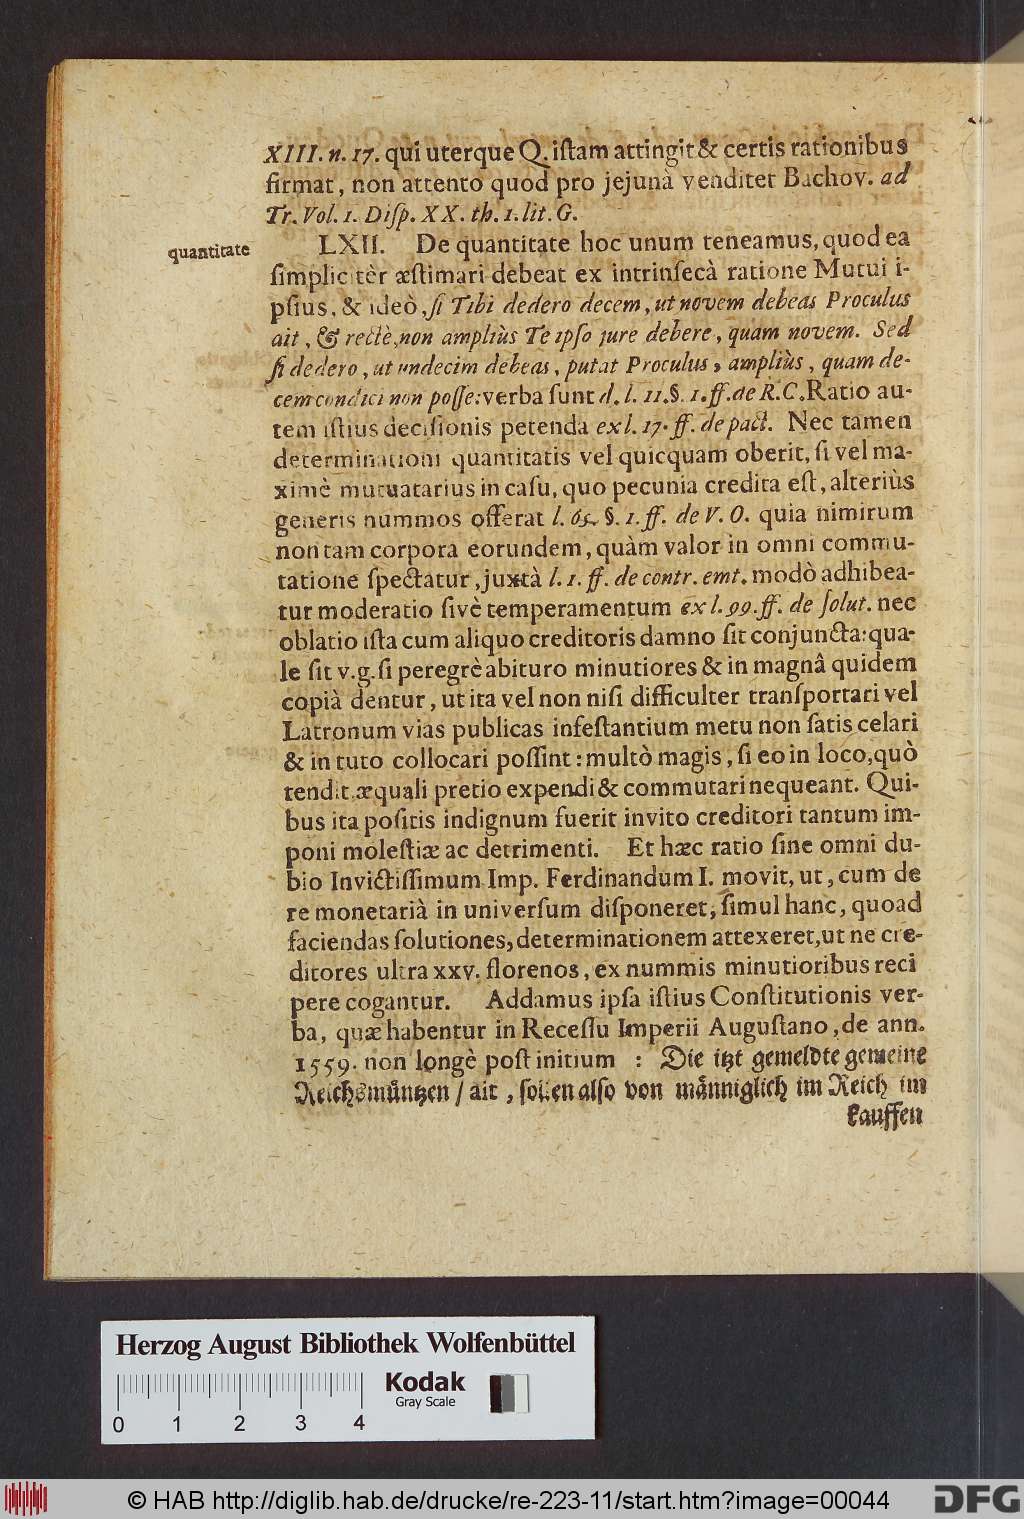 XIII. n. 17. qui uterque Q. iſtam attingit & certis rationibus
firmat, non attento quod pro jejunâ venditet Bachov. ad
Tr. Vol. 1. Diſp. XX. th. 1. lit. G.
quantitate
LXII. De quantitate hoc unum teneamus, quod ea
ſimplicitèr æſtimari debeat ex intrinſecà ratione Mutui i-
pſius, & ideò, ſi Tibi dedero decem, ut novem debeas Proculus
ait, & rectè, non ampliùs Te ipſo jure debere, quam novem. Sed
ſi dedero, ut undecim debeas, putat Proculus, ampliùs, quam de-
cem condici non poſſe: verba ſunt d. l. 11. §. 1. ff. de R. C. Ratio au-
tem iſtius deciſionis petenda ex l. 17. ff. de pact. Nec tamen
determinationi quantitatis vel quicquam oberit, ſi vel ma-
ximè mutuatarius in caſu, quo pecunia credita eſt, alteriùs
generis nummos offerat l. 65. §. 1. ff. de V. O. quia nimirum
non tam corpora eorundem, quàm valor in omni commu-
tatione ſpectatur, juxtà l. 1. ff. de contr. emt. modò adhibea-
tur moderatio ſivè temperamentum ex l. 99. ff. de ſolut. nec
oblatio iſta cum aliquo creditoris damno ſit conjuncta: qua-
le ſit v. g. ſi peregrè abituro minutiores & in magnâ quidem
copià dentur, ut ita vel non niſi difficulter tranſportari vel
Latronum vias publicas infeſtantium metu non ſatis celari
& in tuto collocari poſſint: multò magis, ſi eo in loco, quò
tendit æquali pretio expendi & commutari nequeant. Qui-
bus ita poſitis indignum fuerit invito creditori tantum im-
poni moleſtiæ ac detrimenti. Et hæc ratio ſine omni du-
bio Invictiſſimum Imp. Ferdinandum I. movit, ut, cum de
re monetarià in univerſum diſponeret, ſimul hanc, quoad
faciendas ſolutiones, determinationem attexeret, ut ne cre-
ditores ultra xxv. florenos, ex nummis minutioribus reci
pere cogantur. Addamus ipſa iſtius Conſtitutionis ver-
ba, quæ habentur in Receſſu Imperii Auguſtano, de ann.
1559. non longè poſt initium : Die itzt gemeldte gemeine
Reichsmüntzen / ait, ſollen alſo von männiglich im Reich im
kauffen
Herzog August Bibliothek Wolfenbüttel
Kodak
Gray Scale
0 1 2 3 4
© HAB http://diglib.hab.de/drucke/re-223-11/start.htm?image=00044
DFG